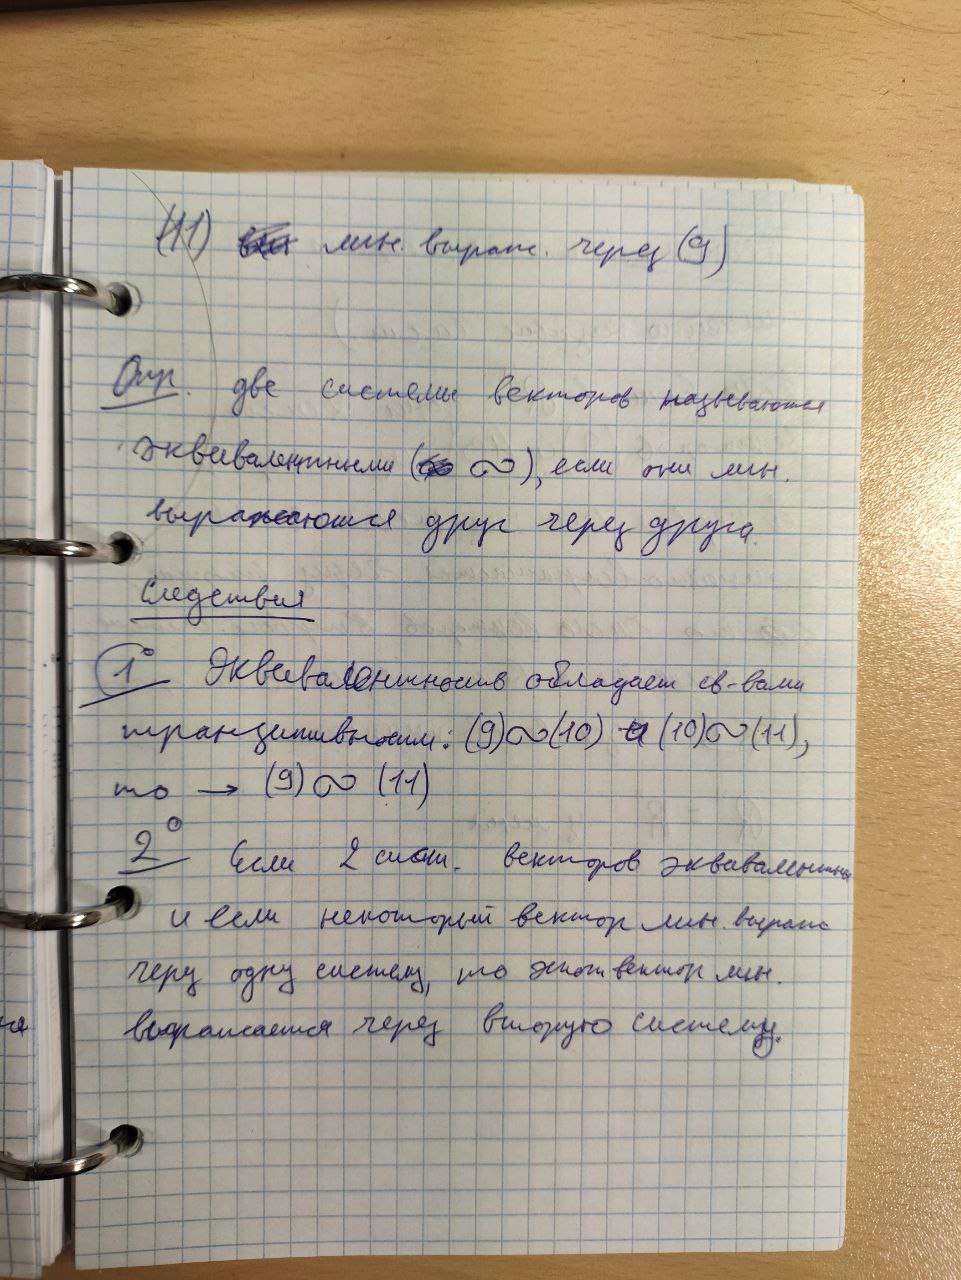 (11) лин. выраж. через (9)
Опр. две системы векторов называются
эквивалентными (∾), если они лин.
выражаются друг через друга.
Следствия
1° Эквивалентность обладает св-вами
транзитивности: (9)∾(10) и (10)∾(11),
то → (9)∾(11)
2° Если 2 сист. векторов эквивалентны
и если некоторый вектор лин. выраж
через одну систему, то этот вектор лин.
выражается через вторую систему.